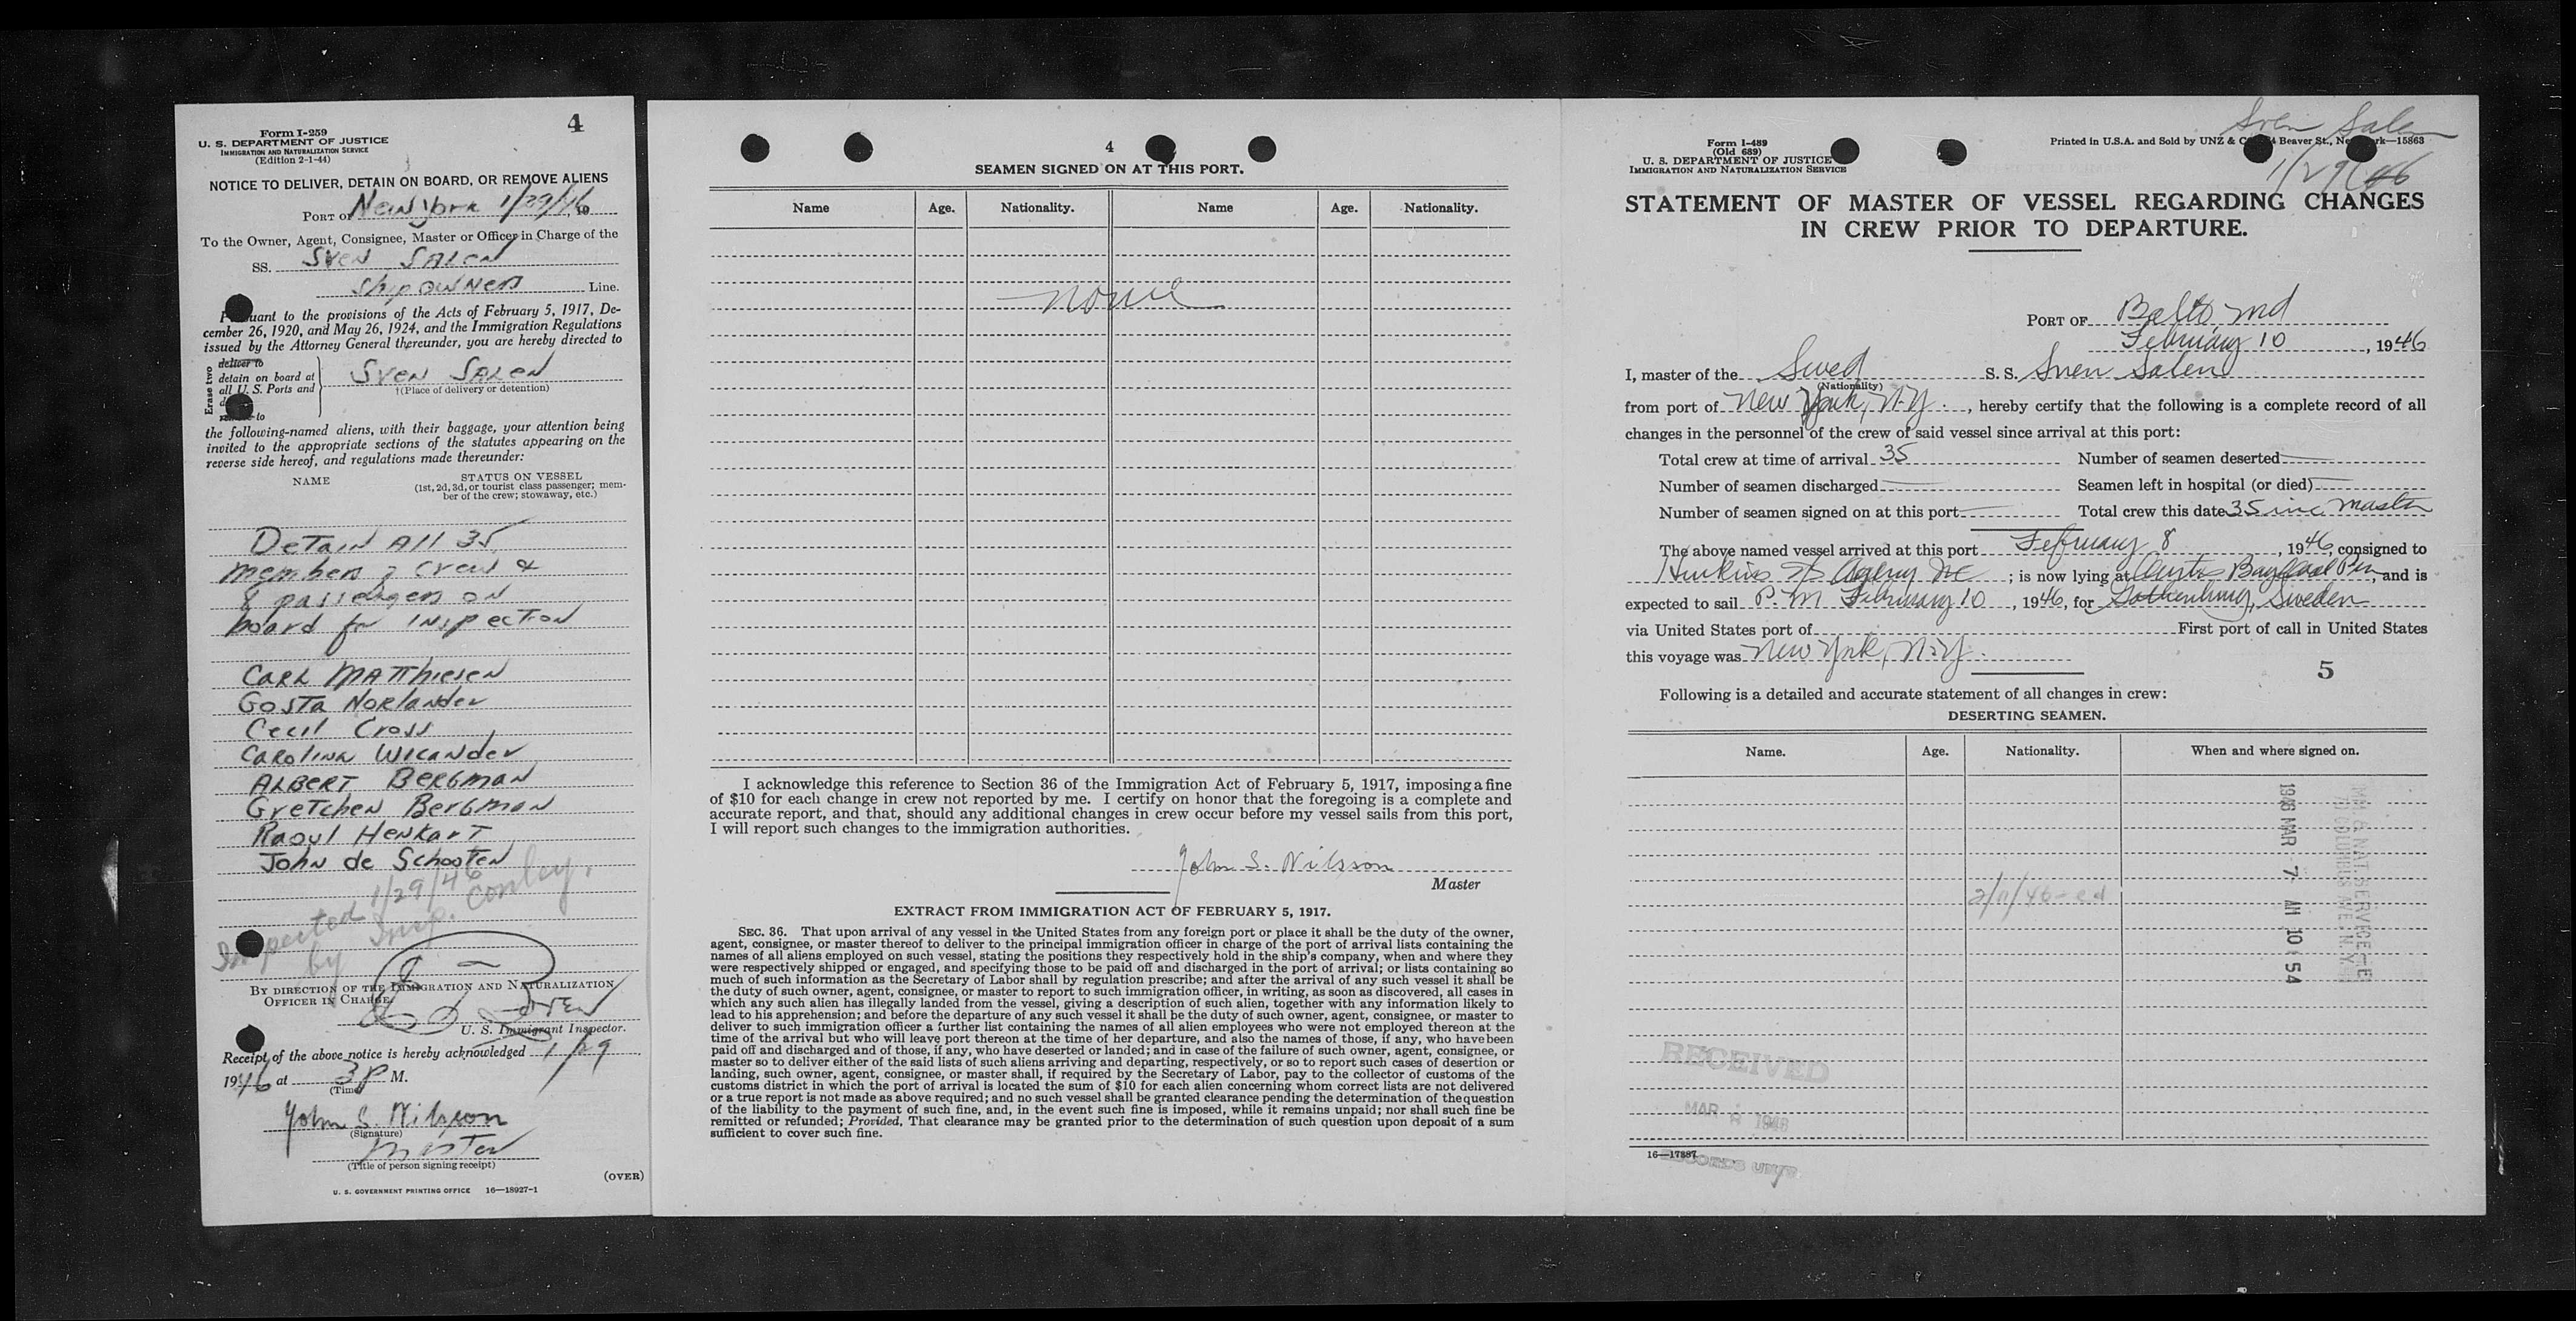 Form I-259
U. S. DEPARTMENT OF JUSTICE
IMMIGRATION AND NATURALIZATION SERVICE
(Edition 2-1-44)
4
NOTICE TO DELIVER, DETAIN ON BOARD, OR REMOVE ALIENS
PORT OF New York 1/29/46, 19
To the Owner, Agent, Consignee, Master or Officer in Charge of the
SS. Sven Salen
Shipowners Line.
Pursuant to the provisions of the Acts of February 5, 1917, De-
cember 26, 1920, and May 26, 1924, and the Immigration Regulations
issued by the Attorney General thereunder, you are hereby directed to
Erase two
deliver to
detain on board at
all U. S. Ports and
remove to
Sven Salen
†(Place of delivery or detention)
the following-named aliens, with their baggage, your attention being
invited to the appropriate sections of the statutes appearing on the
reverse side hereof, and regulations made thereunder:
NAME
STATUS ON VESSEL
(1st, 2d, 3d, or tourist class passenger; mem-
ber of the crew; stowaway, etc.)
Detain All 35
members of crew &
8 passengers on
board for Inspection
Carl Matthiesen
Gosta Norlander
Cecil Cross
Carolina Wicander
Albert Bergman
Gretchen Bergman
Raoul Henkart
John de Schooten
Inspected 1/29/46
by Insp. Conley.
BY DIRECTION OF THE IMMIGRATION AND NATURALIZATION
OFFICER IN CHARGE
U. S. Immigrant Inspector.
Receipt of the above notice is hereby acknowledged 1/29
1946 at 3 P M.
(Time)
John S. Nilsson
(Signature)
Master
(Title of person signing receipt)
(OVER)
U. S. GOVERNMENT PRINTING OFFICE 16—18927-1
4
SEAMEN SIGNED ON AT THIS PORT.
Name Age. Nationality. Name Age. Nationality.
None
I acknowledge this reference to Section 36 of the Immigration Act of February 5, 1917, imposing a fine
of $10 for each change in crew not reported by me. I certify on honor that the foregoing is a complete and
accurate report, and that, should any additional changes in crew occur before my vessel sails from this port,
I will report such changes to the immigration authorities.
John S. Nilsson
Master
EXTRACT FROM IMMIGRATION ACT OF FEBRUARY 5, 1917.
SEC. 36. That upon arrival of any vessel in the United States from any foreign port or place it shall be the duty of the owner,
agent, consignee, or master thereof to deliver to the principal immigration officer in charge of the port of arrival lists containing the
names of all aliens employed on such vessel, stating the positions they respectively hold in the ship's company, when and where they
were respectively shipped or engaged, and specifying those to be paid off and discharged in the port of arrival; or lists containing so
much of such information as the Secretary of Labor shall by regulation prescribe; and after the arrival of any such vessel it shall be
the duty of such owner, agent, consignee, or master to report to such immigration officer, in writing, as soon as discovered, all cases in
which any such alien has illegally landed from the vessel, giving a description of such alien, together with any information likely to
lead to his apprehension; and before the departure of any such vessel it shall be the duty of such owner, agent, consignee, or master to
deliver to such immigration officer a further list containing the names of all alien employees who were not employed thereon at the
time of the arrival but who will leave port thereon at the time of her departure, and also the names of those, if any, who have been
paid off and discharged and of those, if any, who have deserted or landed; and in case of the failure of such owner, agent, consignee, or
master so to deliver either of the said lists of such aliens arriving and departing, respectively, or so to report such cases of desertion or
landing, such owner, agent, consignee, or master shall, if required by the Secretary of Labor, pay to the collector of customs of the
customs district in which the port of arrival is located the sum of $10 for each alien concerning whom correct lists are not delivered
or a true report is not made as above required; and no such vessel shall be granted clearance pending the determination of the question
of the liability to the payment of such fine, and, in the event such fine is imposed, while it remains unpaid; nor shall such fine be
remitted or refunded; Provided, That clearance may be granted prior to the determination of such question upon deposit of a sum
sufficient to cover such fine.
Sven Salen
1/29/46
Form I-489
(Old 689)
U. S. DEPARTMENT OF JUSTICE
IMMIGRATION AND NATURALIZATION SERVICE
Printed in U.S.A. and Sold by UNZ & Beaver St., New York—15863
STATEMENT OF MASTER OF VESSEL REGARDING CHANGES
IN CREW PRIOR TO DEPARTURE.
PORT OF Balto, Md
February 10, 1946
I, master of the Swed S. S. Sven Salen
(Nationality)
from port of New York, N.Y., hereby certify that the following is a complete record of all
changes in the personnel of the crew of said vessel since arrival at this port:
Total crew at time of arrival 35 Number of seamen deserted —
Number of seamen discharged — Seamen left in hospital (or died) —
Number of seamen signed on at this port — Total crew this date 35 inc master
The above named vessel arrived at this port February 8, 1946, consigned to
SS Agency Inc; is now lying at Curtis Bay Coal Pier, and is
expected to sail P.M February 10, 1946, for Gothenburg, Sweden
via United States port of First port of call in United States
this voyage was New York, N.Y.
5
Following is a detailed and accurate statement of all changes in crew:
DESERTING SEAMEN.
Name. Age. Nationality. When and where signed on.
1946 MAR 7 AM 10 54
IMM. & NAT. SERVICE
70 COLUMBUS AVE. N.Y.
RECEIVED
MAR 1946
RECORDS UNIT
16—17887